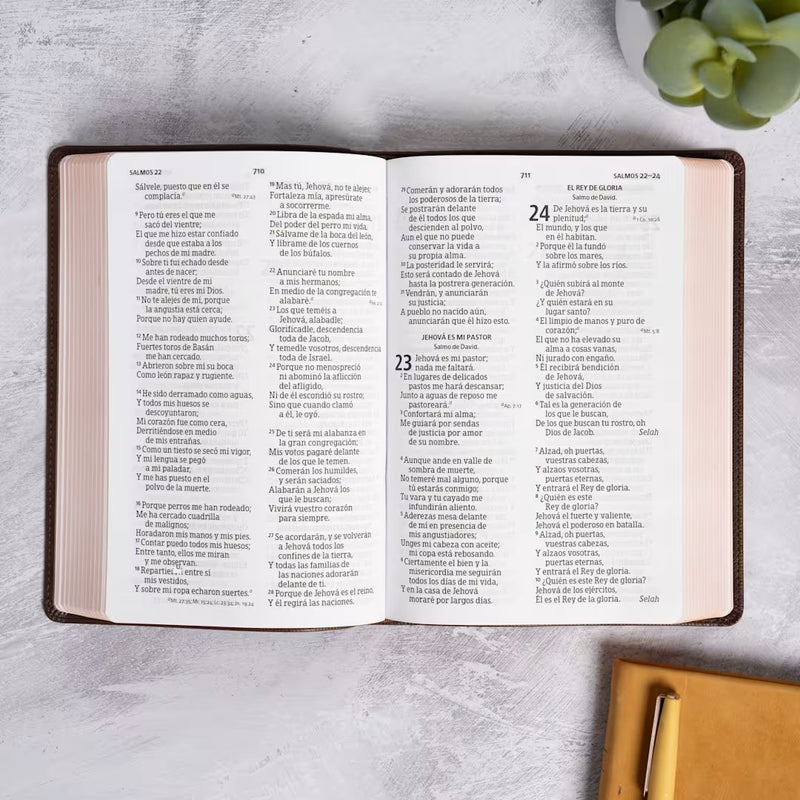 SALMOS 22
710
Sálvele, puesto que en él se
complacía.ᵈ
ᵈMt. 27:43
9 Pero tú eres el que me
sacó del vientre;
El que me hizo estar confiado
desde que estaba a los
pechos de mi madre.
10 Sobre ti fui echado desde
antes de nacer;
Desde el vientre de mi
madre, tú eres mi Dios.
11 No te alejes de mí, porque
la angustia está cerca;
Porque no hay quien ayude.
12 Me han rodeado muchos toros;
Fuertes toros de Basán
me han cercado.
13 Abrieron sobre mí su boca
Como león rapaz y rugiente.
14 He sido derramado como aguas,
Y todos mis huesos se
descoyuntaron;
Mi corazón fue como cera,
Derritiéndose en medio
de mis entrañas.
15 Como un tiesto se secó mi vigor,
Y mi lengua se pegó
a mi paladar,
Y me has puesto en el
polvo de la muerte.
16 Porque perros me han rodeado;
Me ha cercado cuadrilla
de malignos;
Horadaron mis manos y mis pies.
17 Contar puedo todos mis huesos;
Entre tanto, ellos me miran
y me observan.
18 Repartieron entre sí
mis vestidos,
Y sobre mi ropa echaron suertes.
19 Mas tú, Jehová, no te alejes;
Fortaleza mía, apresúrate
a socorrerme.
20 Libra de la espada mi alma,
Del poder del perro mi vida.
21 Sálvame de la boca del león,
Y líbrame de los cuernos
de los búfalos.
22 Anunciaré tu nombre
a mis hermanos;
En medio de la congregación te
alabaré.
23 Los que teméis a
Jehová, alabadle;
Glorificadle, descendencia
toda de Jacob,
Y temedle vosotros, descendencia
toda de Israel.
24 Porque no menospreció
ni abominó la aflicción
del afligido,
Ni de él escondió su rostro;
Sino que cuando clamó
a él, le oyó.
25 De ti será mi alabanza en
la gran congregación;
Mis votos pagaré delante
de los que le temen.
26 Comerán los humildes,
y serán saciados;
Alabarán a Jehová los
que le buscan;
Vivirá vuestro corazón
para siempre.
27 Se acordarán, y se volverán
a Jehová todos los
confines de la tierra,
Y todas las familias de
las naciones adorarán
delante de ti.
28 Porque de Jehová es el reino,
Y él regirá las naciones.
711
SALMOS 22—24
29 Comerán y adorarán todos
los poderosos de la tierra;
Se postrarán delante
de él todos los que
descienden al polvo,
Aun el que no puede
conservar la vida a
su propia alma.
30 La posteridad le servirá;
Esto será contado de Jehová
hasta la postrera generación.
31 Vendrán, y anunciarán
su justicia;
A pueblo no nacido aún,
anunciarán que él hizo esto.
JEHOVÁ ES MI PASTOR
Salmo de David.
23 Jehová es mi pastor;
nada me faltará.
2 En lugares de delicados
pastos me hará descansar;
Junto a aguas de reposo me
pastoreará.ᵃ
ᵃAp. 7:17
3 Confortará mi alma;
Me guiará por sendas
de justicia por amor
de su nombre.
4 Aunque ande en valle de
sombra de muerte,
No temeré mal alguno, porque
tú estarás conmigo;
Tu vara y tu cayado me
infundirán aliento.
5 Aderezas mesa delante
de mí en presencia de
mis angustiadores;
Unges mi cabeza con aceite;
mi copa está rebosando.
6 Ciertamente el bien y la
misericordia me seguirán
todos los días de mi vida,
Y en la casa de Jehová
moraré por largos días.
EL REY DE GLORIA
Salmo de David.
24 De Jehová es la tierra y su
plenitud;
El mundo, y los que
en él habitan.
2 Porque él la fundó
sobre los mares,
Y la afirmó sobre los ríos.
3 ¿Quién subirá al monte
de Jehová?
¿Y quién estará en su
lugar santo?
4 El limpio de manos y puro de
corazón;ᵃ
ᵃMt. 5:8
El que no ha elevado su
alma a cosas vanas,
Ni jurado con engaño.
5 Él recibirá bendición
de Jehová,
Y justicia del Dios
de salvación.
6 Tal es la generación de
los que le buscan,
De los que buscan tu rostro, oh
Dios de Jacob. Selah
7 Alzad, oh puertas,
vuestras cabezas,
Y alzaos vosotras,
puertas eternas,
Y entrará el Rey de gloria.
8 ¿Quién es este
Rey de gloria?
Jehová el fuerte y valiente,
Jehová el poderoso en batalla.
9 Alzad, oh puertas,
vuestras cabezas,
Y alzaos vosotras,
puertas eternas,
Y entrará el Rey de gloria.
10 ¿Quién es este Rey de gloria?
Jehová de los ejércitos,
Él es el Rey de la gloria. Selah